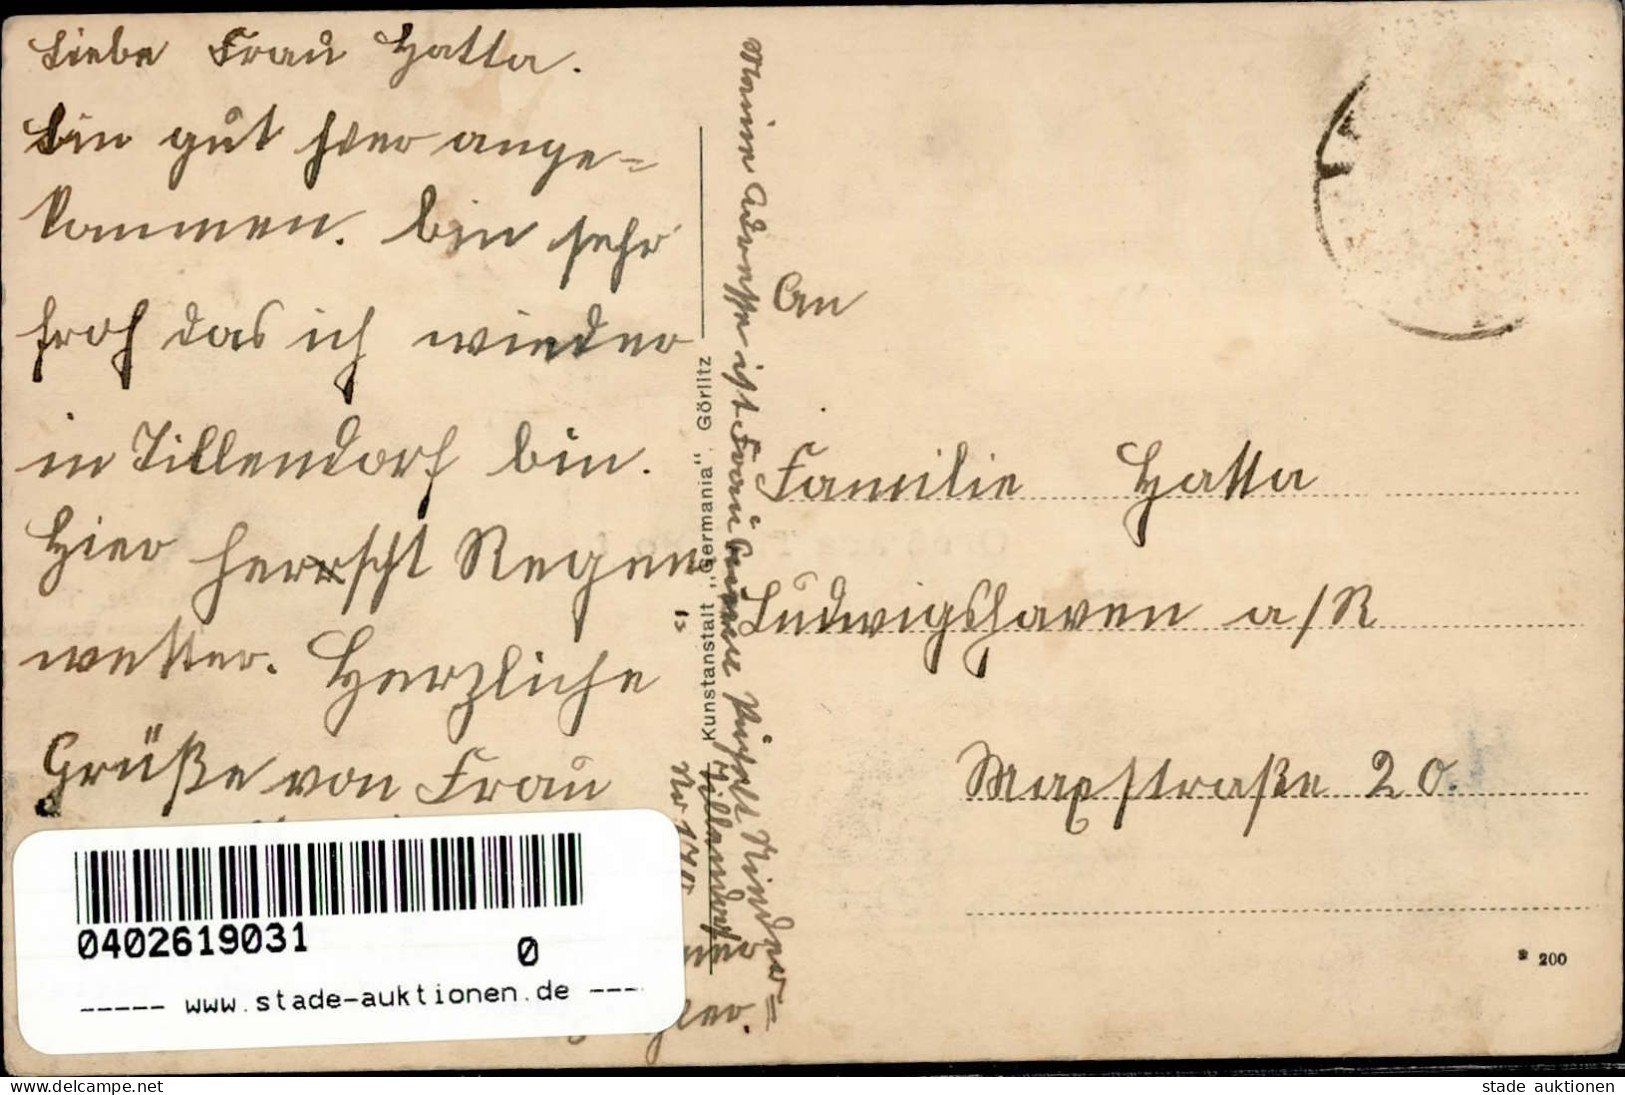 Liebe Frau Hatta.
bin gut hier ange=
kommen. bin sehr
froh das ich wieder
in Tillendorf bin.
Hier herrscht Regen
wetter. Herzliche
Grüße von Frau
Meine Adresse ist Frau
Nieder=
Tillendorf
Nr 170
Kunstanstalt „Germania“ Görlitz
An
Familie Hatta
Ludwigshaven a/R
Maxstraße 20.
200
0402619031
0
----- www.stade-auktionen.de ----
www.delcampe.net
stade auktionen